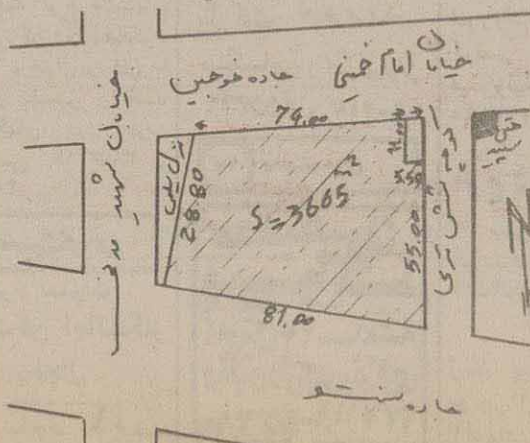 خیابان امام خمینی
جاده خوجین
خیابان شهید مدنی
74.00
11.00
5.50
28.80
S=3665 m²
55.00
81.00
جاده سنتو